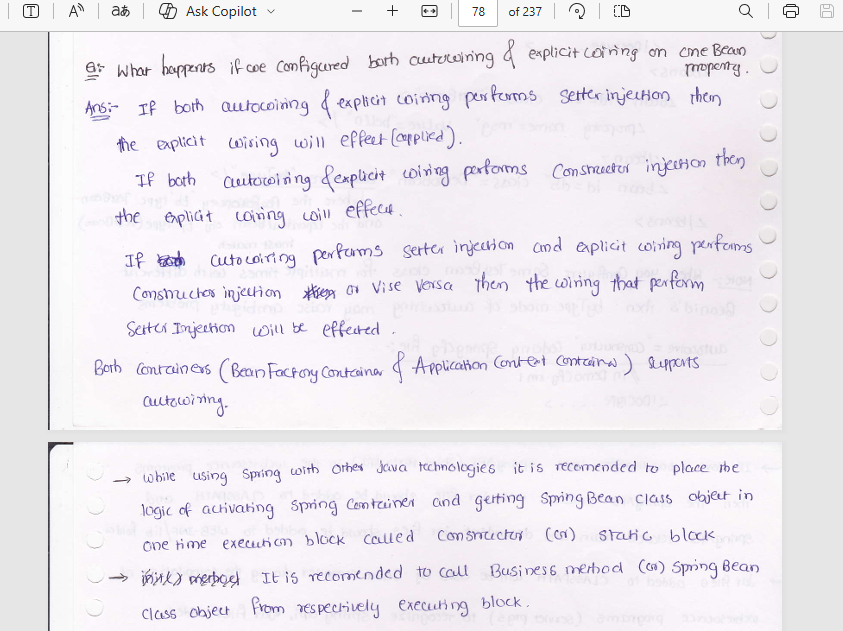 Ask Copilot
78 of 237
Q:- What happens if we configured both autowiring & explicit wiring on one Bean
property.
Ans:- If both autowiring & explicit wiring performs setter injection then
the explicit wiring will effect (applied).
If both autowiring & explicit wiring performs Constructor injection then
the explicit wiring will effect.
If both autowiring performs setter injection and explicit wiring performs
Constructor injection or Vise Versa Then the wiring that perform
Setter Injection will be effected.
Both Containers (Bean Factory Container & Application Context Container) supports
autowiring.
→ While using Spring with other Java technologies it is recomended to place the
logic of activating Spring Container and getting Spring Bean class object in
one time execution block called Constructor (or) static block
→ init() method It is recomended to call Business method (or) Spring Bean
class object from respectively executing block.